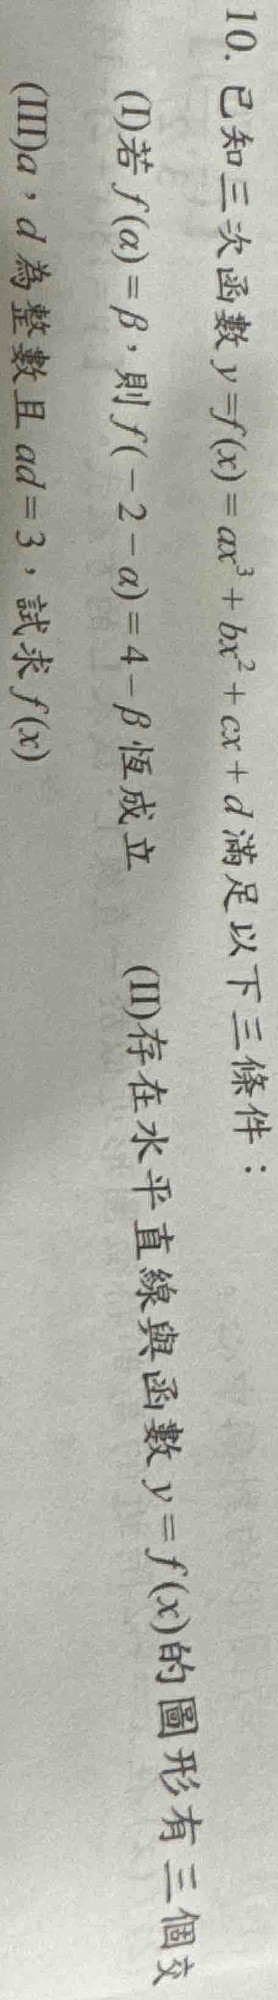 10. 已知三次函數 y=f(x)=ax³+bx²+cx+d 滿足以下三條件：
(I)若 f(α)=β，則 f(−2−α)=4−β 恆成立 (II)存在水平直線與函數 y=f(x)的圖形有三個交
(III)a，d 為整數且 ad=3，試求 f(x)